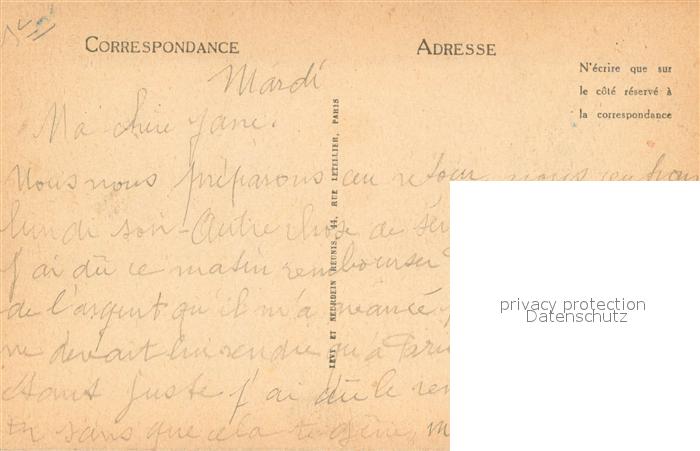 CORRESPONDANCE
ADRESSE
N'écrire que sur
le côté réservé à
la correspondance
Mardi
Ma chère Jane.
Nous nous préparons au retour, nous
lundi soir - Autre chose de
J'ai dû ce matin rembourser
de l'argent qu'il m'a avancé
ne devait lui rendre qu'à Paris
étant juste j'ai dû le
tu sans que cela te gêne
LEVY ET NEURDEIN REUNIS, 44, RUE LETELLIER, PARIS
privacy protection
Datenschutz